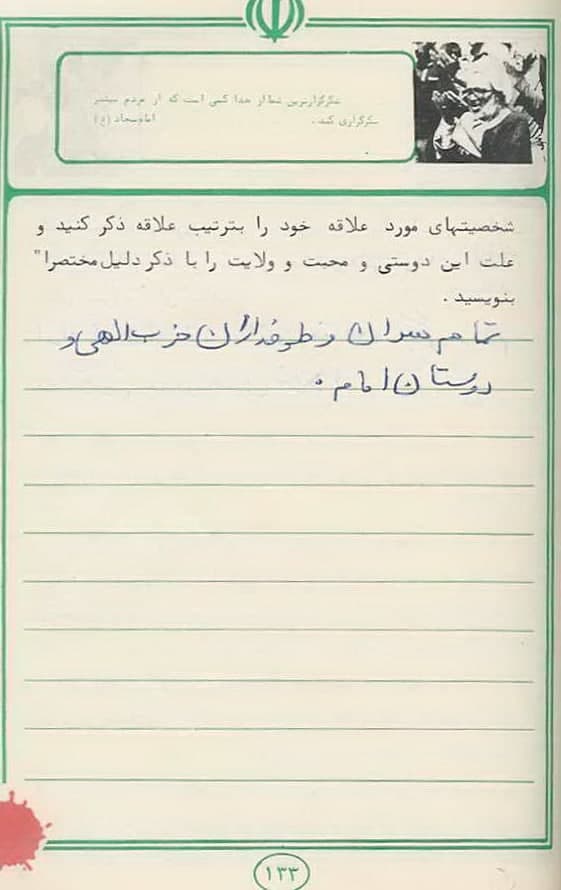 شکرگزارترین شما از خدا کسی است که از مردم بیشتر
سکرگزاری کند .
امام سجاد (ع)
شخصیتهای مورد علاقه خود را بترتیب علاقه ذکر کنید و
علت این دوستی و محبت و ولایت را با ذکر دلیل مختصرا"
بنویسید .
تمام سران و طرفداران حزب اللهی و
دوستان امام .
۱۳۳